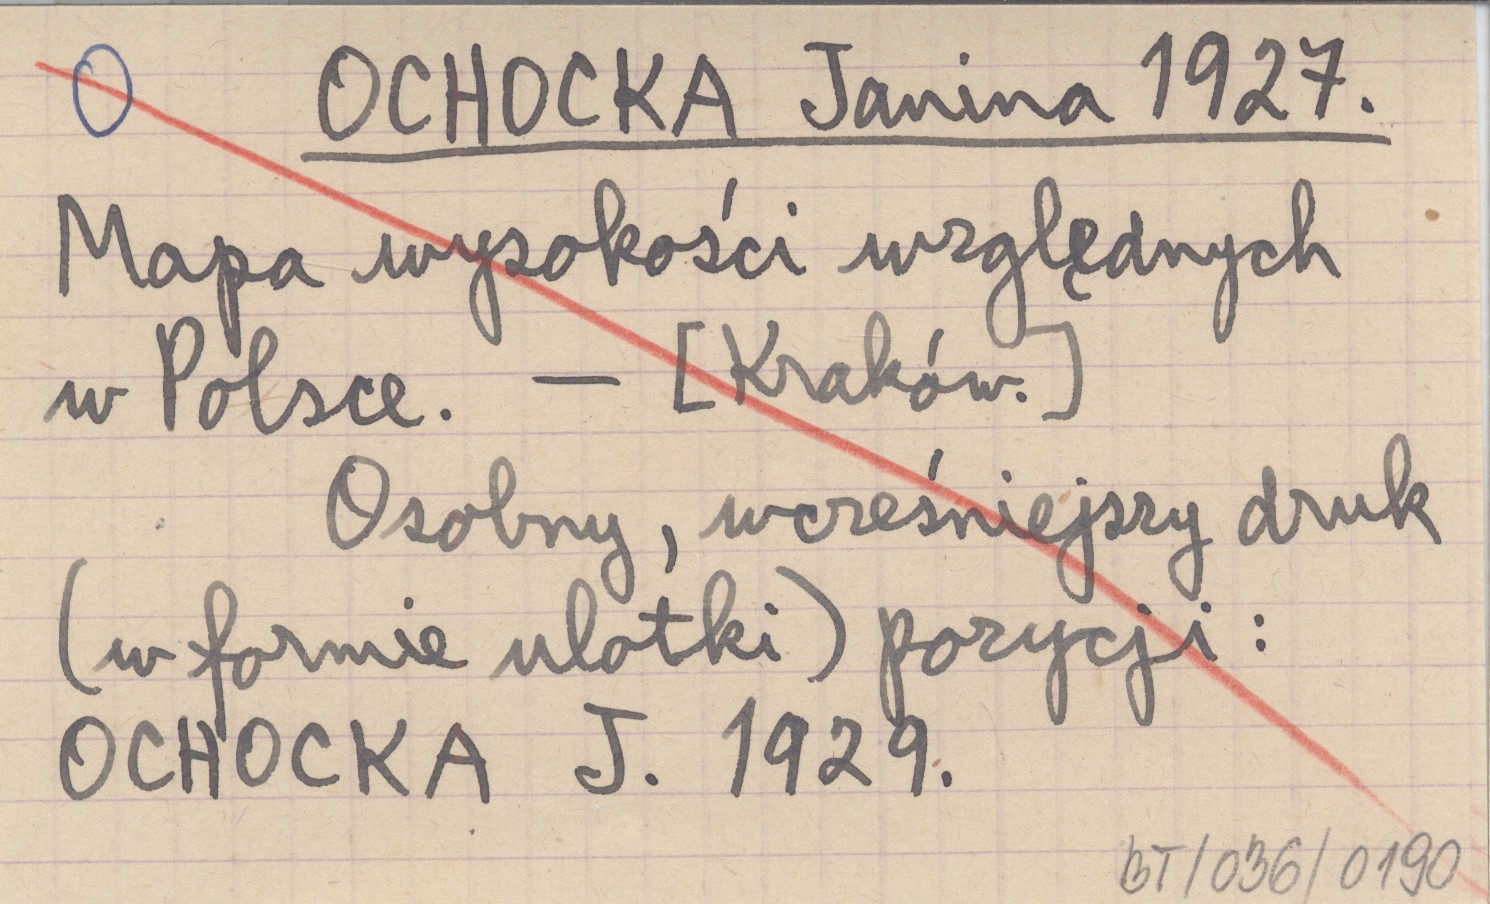 O OCHOCKA Janina 1927.
Mapa wysokości względnych
w Polsce. — [Kraków.]
Osobny, wcześniejszy druk
(w formie ulotki) pozycji:
OCHOCKA J. 1929.
BT/036/0190